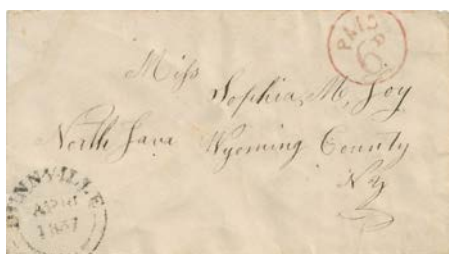 PAID
6D
Miss
Sophia, M, Joy
North Java Wyoming County
N Y
DUNNVILLE
AP 18
1857